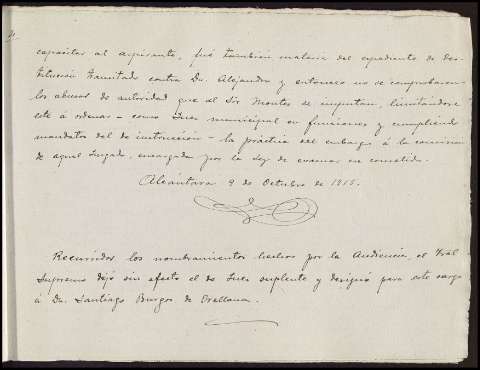 capacitar al aspirante, fué tambien materia del expediente de des-
titucion tramitado contra Dn. Alejandro y entonces no se comprobaron
los abusos de autoridad que al Sr. Montes se imputan, limitándose
este á ordenar - como Juez municipal en funciones y cumpliendo
mandatos del de instrucción - la práctica del embargo á la
de aquel Juzgado, encargada por la Ley de evacuar su cometido.
Alcántara 9 de Octubre de 1915.
Recurridos los nombramientos hechos por la Audiencia, el Tral
Supremo dejó sin efecto el de Juez suplente y designó para este cargo
á Dn. Santiago Burgos de Orellana.